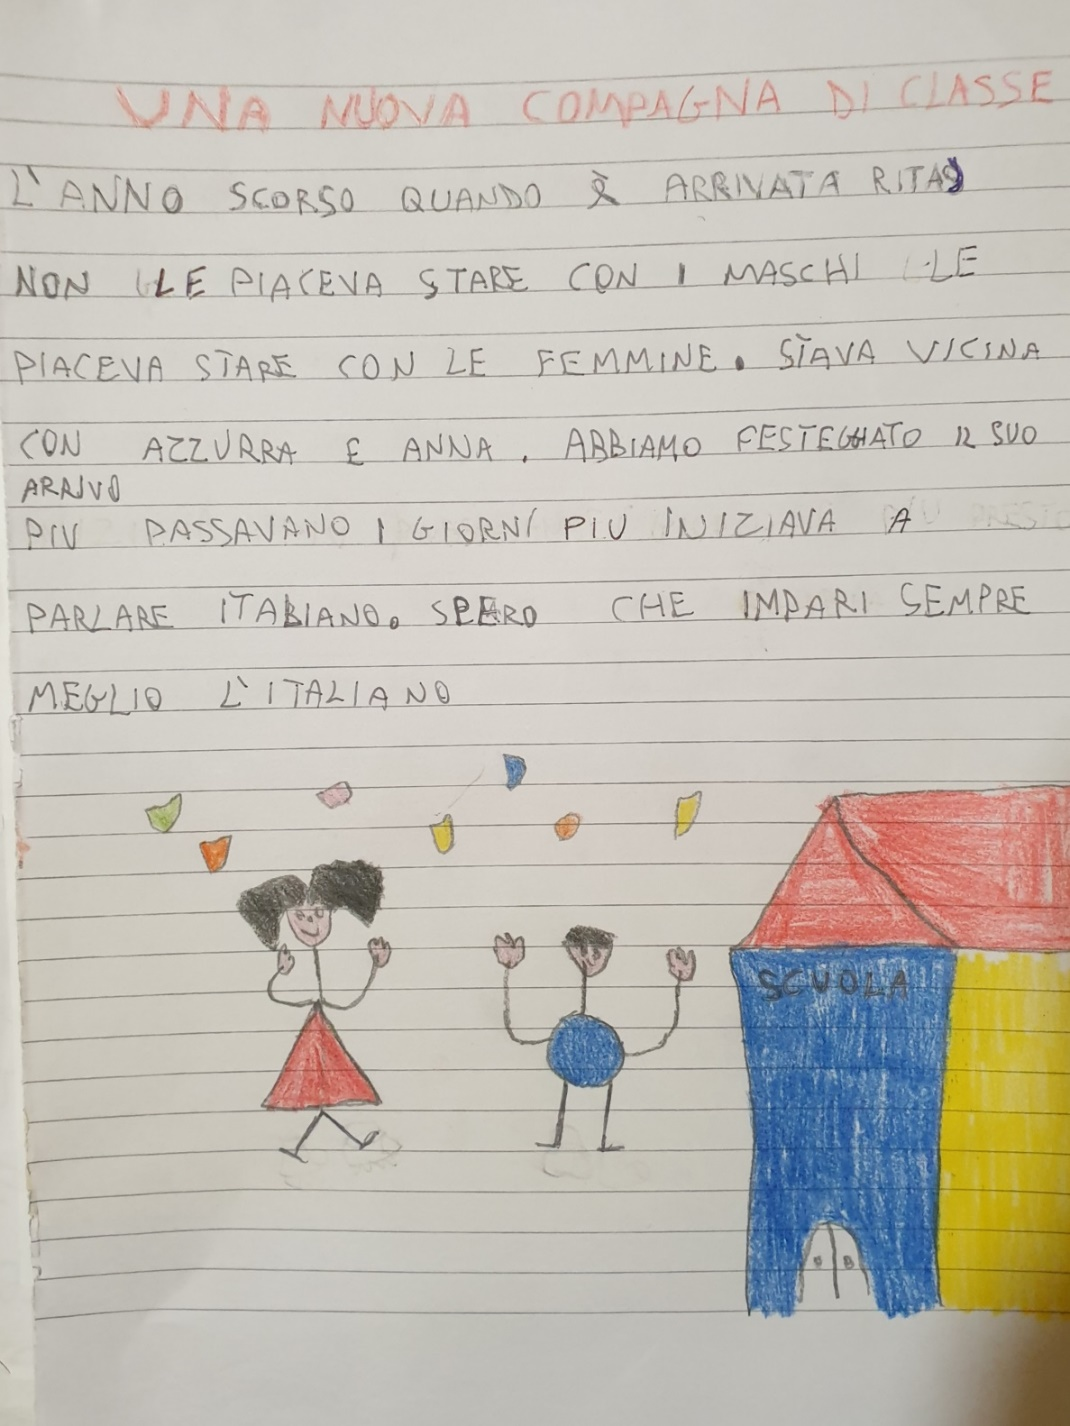 UNA NUOVA COMPAGNA DI CLASSE
L'ANNO SCORSO QUANDO È ARRIVATA RITA
NON LE PIACEVA STARE CON I MASCHI LE
PIACEVA STARE CON LE FEMMINE. STAVA VICINA
CON AZZURRA E ANNA. ABBIAMO FESTEGGIATO IL SUO
ARRIVO
PIU PASSAVANO I GIORNI PIU INIZIAVA A
PARLARE ITALIANO. SPERO CHE IMPARI SEMPRE
MEGLIO L'ITALIANO
SCUOLA